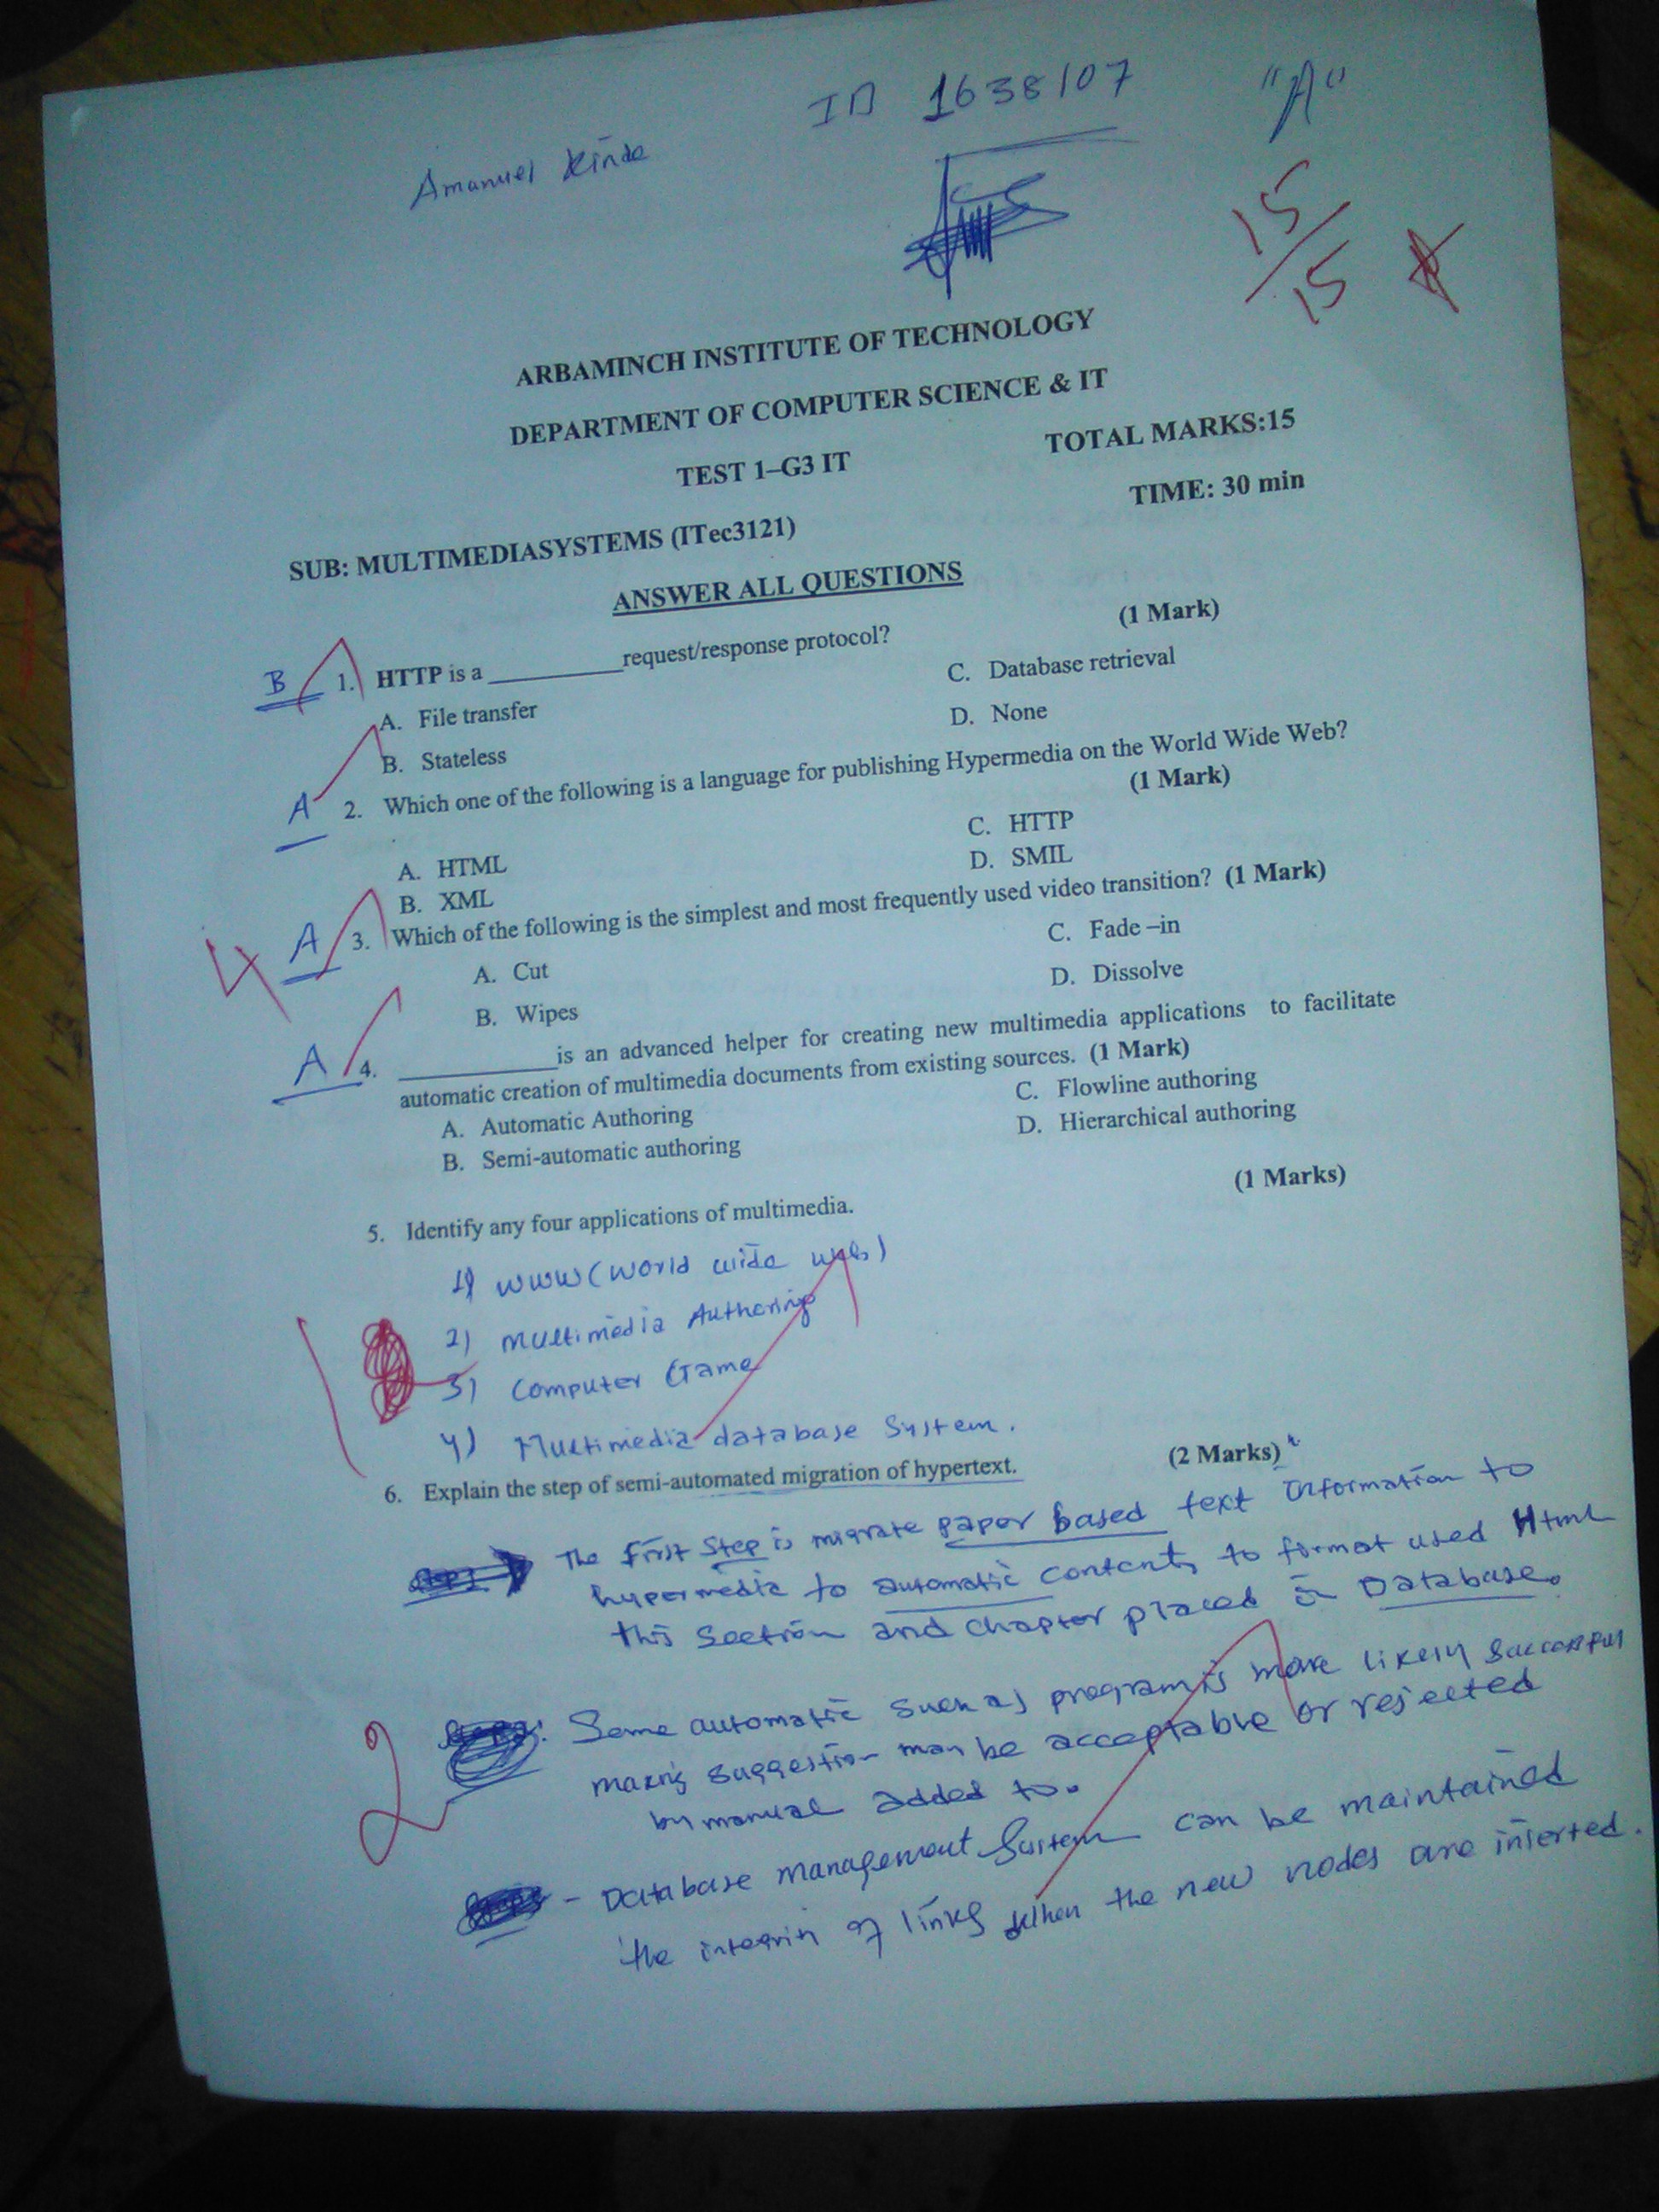 ID 1638/07 "A"
Amanuel Kinde
15/15
ARBAMINCH INSTITUTE OF TECHNOLOGY
DEPARTMENT OF COMPUTER SCIENCE & IT
TEST 1–G3 IT TOTAL MARKS:15
TIME: 30 min
SUB: MULTIMEDIASYSTEMS (ITec3121)
ANSWER ALL QUESTIONS
(1 Mark)
B 1. HTTP is a __________ request/response protocol?
A. File transfer C. Database retrieval
B. Stateless D. None
A 2. Which one of the following is a language for publishing Hypermedia on the World Wide Web?
(1 Mark)
A. HTML C. HTTP
B. XML D. SMIL
4 A 3. Which of the following is the simplest and most frequently used video transition? (1 Mark)
A. Cut C. Fade –in
B. Wipes D. Dissolve
A 4. ____________is an advanced helper for creating new multimedia applications to facilitate
automatic creation of multimedia documents from existing sources. (1 Mark)
A. Automatic Authoring C. Flowline authoring
B. Semi-automatic authoring D. Hierarchical authoring
5. Identify any four applications of multimedia. (1 Marks)
1) WWW (World wide web)
2) Multimedia Authoring
3) Computer Game
4) Multimedia database System.
6. Explain the step of semi-automated migration of hypertext. (2 Marks)
The first step is migrate paper based text Information to
hypermedia to automatic contents to format used Html
this section and chapter placed in Database.
Some automatic such as program is more likely successful
making suggestion may be acceptable or rejected
by manual added to.
2
- Database management System can be maintained
the of links When the new nodes are inserted.